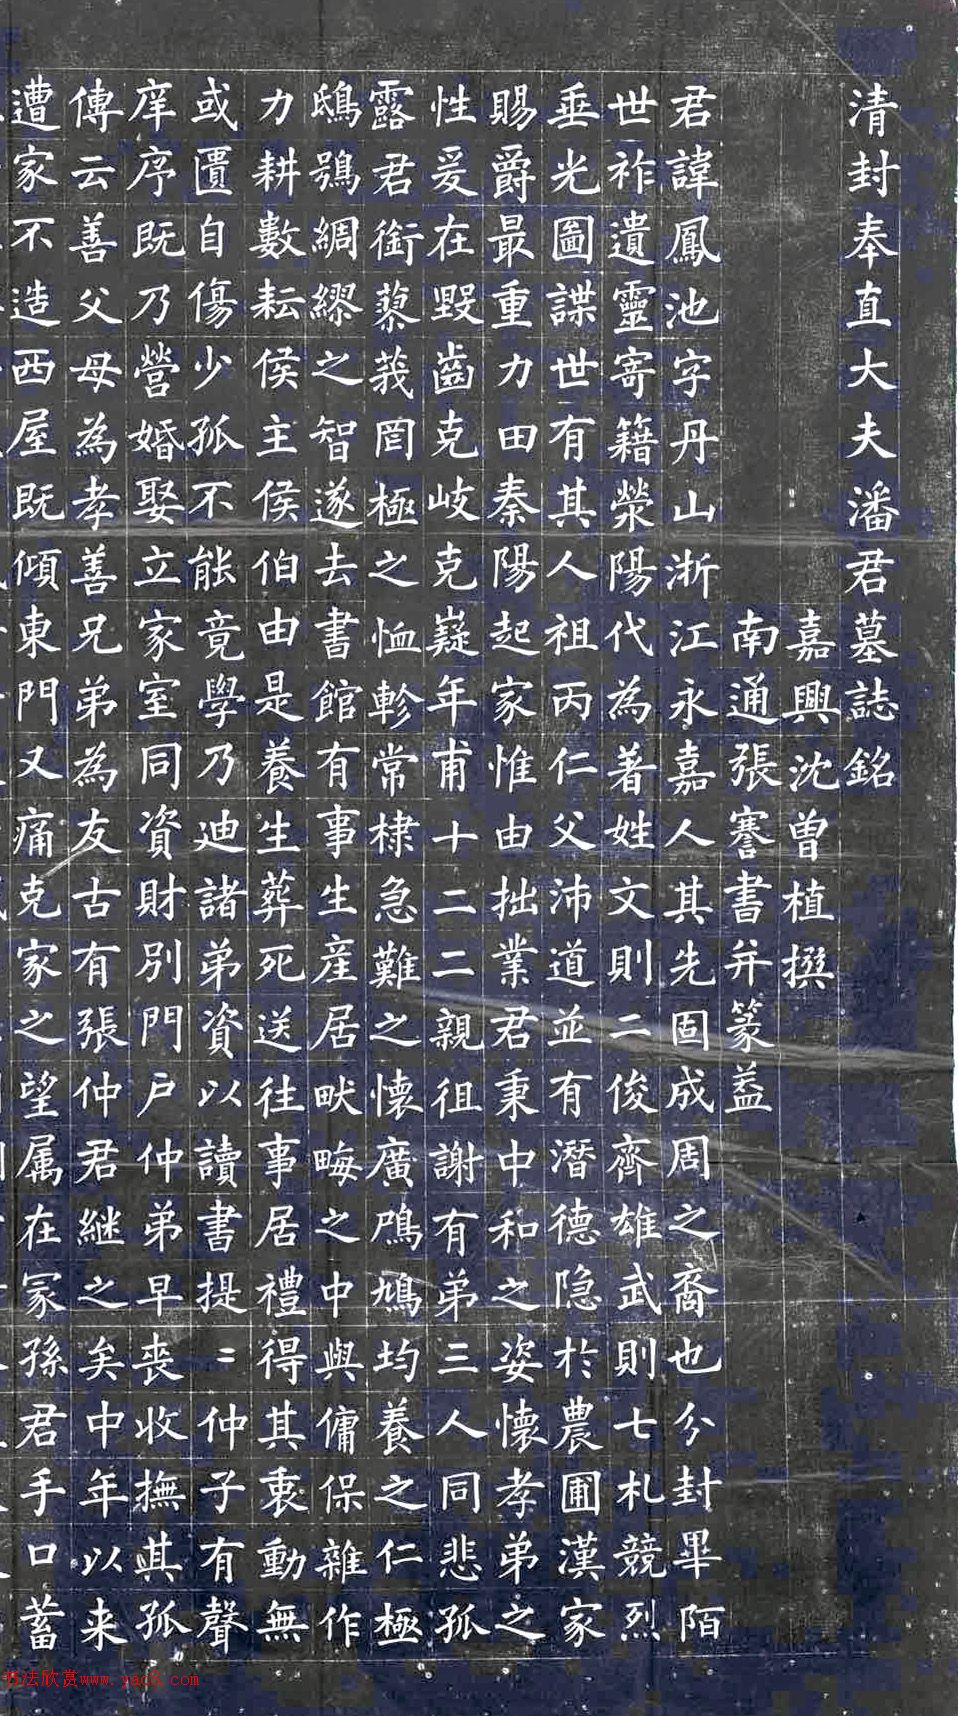 清封奉直大夫潘君墓誌銘
嘉興沈曾植撰
南通張謇書并篆蓋
君諱鳳池字丹山浙江永嘉人其先固成周之裔也分封畢陌
世祚遺靈寄籍滎陽代為著姓文則二俊齊雄武則七札競烈
垂光圖諜世有其人祖丙仁父沛道並有潛德隐於農圃漢家
賜爵最重力田秦陽起家惟由拙業君秉中和之姿懷孝弟之
性爰在毀齒克岐克嶷年甫十二二親徂謝有弟三人同悲孤
露君銜蓼莪罔極之恤軫常棣急難之懷廣鳲鳩均養之仁極
鴟鴞綢繆之智遂去書館有事生産居畎畮之中與傭保雜作
力耕數耘侯主侯伯由是養生葬死送往事居禮得其衷動無
或匱自傷少孤不能竟學乃迪諸弟資以讀書提〻仲子有聲
庠序既乃營婚娶立家室同資財別門户仲弟早丧收撫其孤
傳云善父母為孝善兄弟為友古有張仲君継之矣中年以来
遭家不造西屋既傾東門又痛克家之望属在冢孫君手口蓄
书法欣赏www.yac8.com